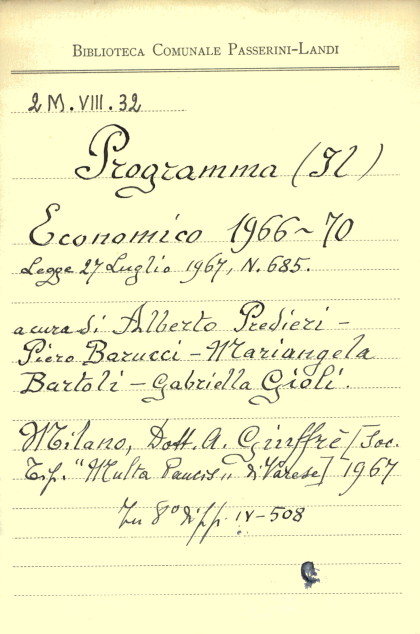 BIBLIOTECA COMUNALE PASSERINI-LANDI
2 M. VIII. 32
Programma (Il)
Economico 1966-70
Legge 27 Luglio 1967, N. 685.
a cura di Alberto Predieri -
Piero Barucci - Mariangela
Bartoli - Gabriella Gioli.
Milano, Dott. A. Giuffrè [Soc.
Tip. "Multa Paucis" di Varese] 1967
In 8° di pp. IV-508